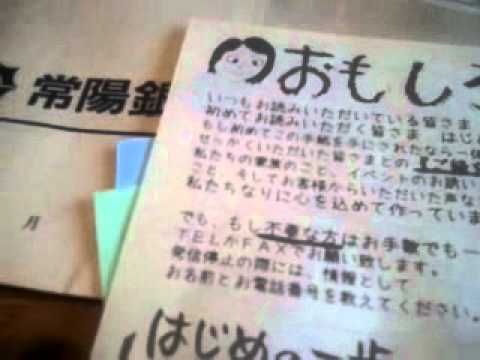 常陽銀
月
おもしろ
いつもお読みいただいている皆さま
初めてお読みいただく皆さま はじ
もし初めてこの手紙を手にされたなら一体
せっかくいただいた皆さまとの『ご縁
私たちの家族のこと、イベントのお誘い
こと、そしてお客様からいただいた声な
私たちなりに心を込めて作っていま
でも、もし不要な方はお手数でも一
TELかFAXでお願い致します。
発信停止の際には、情報として
お名前とお電話番号を教えてください。
はじめの一歩